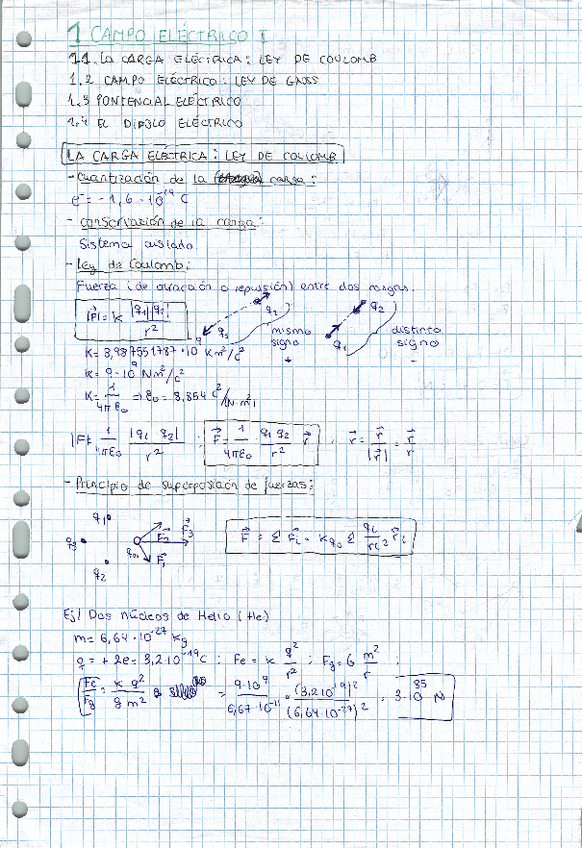 1 CAMPO ELÉCTRICO I
1.1. LA CARGA ELÉCTRICA: LEY DE COULOMB
1.2 CAMPO ELÉCTRICO: LEY DE GAUSS
1.3 PONTENCIAL ELÉCTRICO
1.4 EL DIPOLO ELÉCTRICO
LA CARGA ELÉCTRICA: LEY DE COULOMB
- Cuantización de la carga:
e⁻ = -1,6 · 10⁻¹⁹ C
- Conservación de la carga:
Sistema aislado
- Ley de Coulomb:
Fuerza (de atracción o repulsión) entre dos cargas.
|F| = K |q₁||q₂| / r²
q₁ q₂ mismo signo +
q₁ q₂ distinto signo -
K = 8,987551787 · 10 Km²/C²
K = 9 · 10⁹ Nm²/C²
K = 1/4πε₀ ⇒ ε₀ = 8,854 C²/(N·m²)
|F| = 1/4πε₀ |q₁ q₂|/r² ; F⃗ = 1/4πε₀ q₁ q₂/r² r⃗ ; r⃗ = r⃗/|r⃗| = r⃗/r
- Principio de superposición de fuerzas:
q₁ q₃ q₂ q₀ F⃗₂ F⃗₃ F⃗₁
F⃗ = Σ F⃗ᵢ = K q₀ Σ qᵢ/rᵢ² r⃗ᵢ
Ej/ Dos núcleos de Helio (He)
m = 6,64 · 10⁻²⁷ Kg
q = +2e = 3,2 · 10⁻¹⁹ C ; Fe = K q²/r² ; Fg = G m²/r ;
Fe/Fg = K q²/g m² = 9·10⁹/6,67·10⁻¹¹ · (3,2·10¹⁹)²/(6,64·10⁻²⁷)² = 3·10³⁵ N